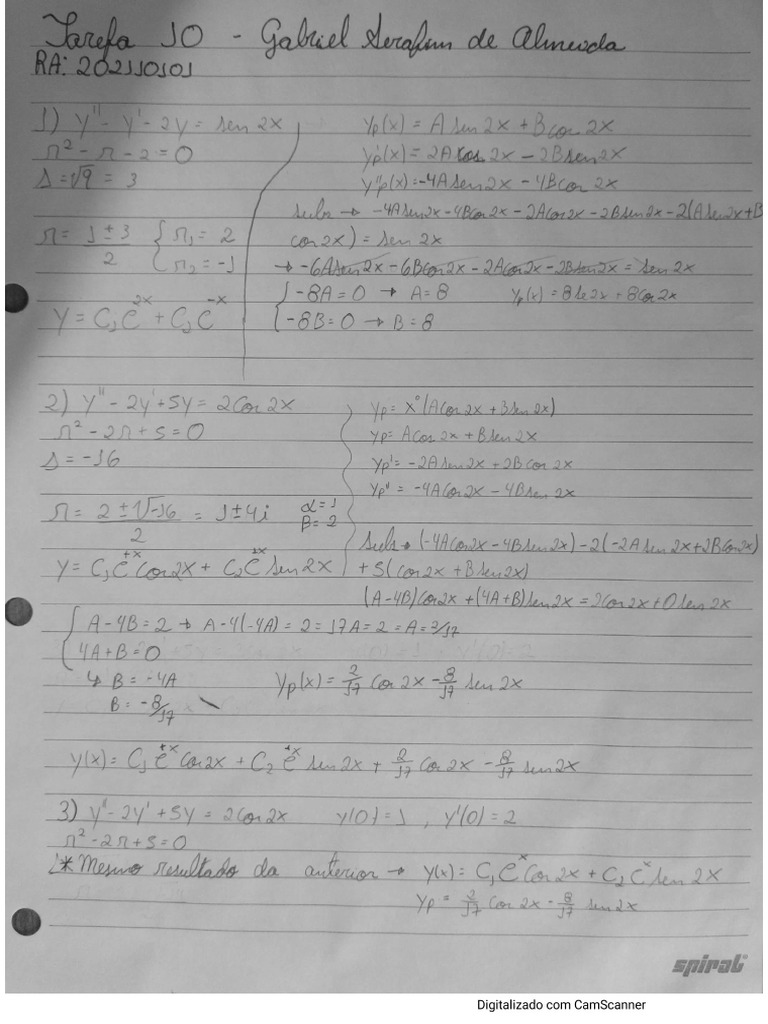 Tarefa 10 - Gabriel Serafim de Almeida
RA: 202110101
1) y'' - y' - 2y = sen 2x
r² - r - 2 = 0
Δ = √9 = 3
r = 1 ± 3 / 2 { r₁ = 2
r₂ = -1
y = C₁e^2x + C₂e^-x
yp(x) = A sen 2x + B cos 2x
y'p(x) = 2A cos 2x - 2B sen 2x
y''p(x) = -4A sen 2x - 4B cos 2x
subs → -4A sen 2x - 4B cos 2x - 2A cos 2x - 2B sen 2x - 2(A sen 2x + B
cos 2x) = sen 2x
→ -6A sen 2x - 6B cos 2x - 2A cos 2x - 2B sen 2x = sen 2x
{ -8A = 0 → A = 8 yp(x) = 8 se 2x + 8 cos 2x
-8B = 0 → B = 8
2) y'' - 2y' + 5y = 2 cos 2x
r² - 2r + 5 = 0
Δ = -16
r = 2 ± √-16 / 2 = 1 ± 4i α = 1
β = 2
y = C₁e^+x cos 2x + C₂e^+x sen 2x
yp = x⁰(A cos 2x + B sen 2x)
yp = A cos 2x + B sen 2x
yp' = -2A sen 2x + 2B cos 2x
yp'' = -4A cos 2x - 4B sen 2x
subs → (-4A cos 2x - 4B sen 2x) - 2(-2A sen 2x + 2B cos 2x)
+ 5(cos 2x + B sen 2x)
(A - 4B) cos 2x + (4A + B) sen 2x = 2 cos 2x + 0 sen 2x
{ A - 4B = 2 → A - 4(-4A) = 2 = 17A = 2 = A = 3/17
4A + B = 0
↳ B = -4A
B = -8/17
yp(x) = 2/17 cos 2x - 8/17 sen 2x
y(x) = C₁e^+x cos 2x + C₂e^+x sen 2x + 2/17 cos 2x - 8/17 sen 2x
3) y'' - 2y' + 5y = 2 cos 2x y(0) = 1 , y'(0) = 2
r² - 2r + 5 = 0
* Mesmo resultado da anterior → y(x) = C₁e^x cos 2x + C₂e^x sen 2x
yp = 2/17 cos 2x - 8/17 sen 2x
spiral
Digitalizado com CamScanner